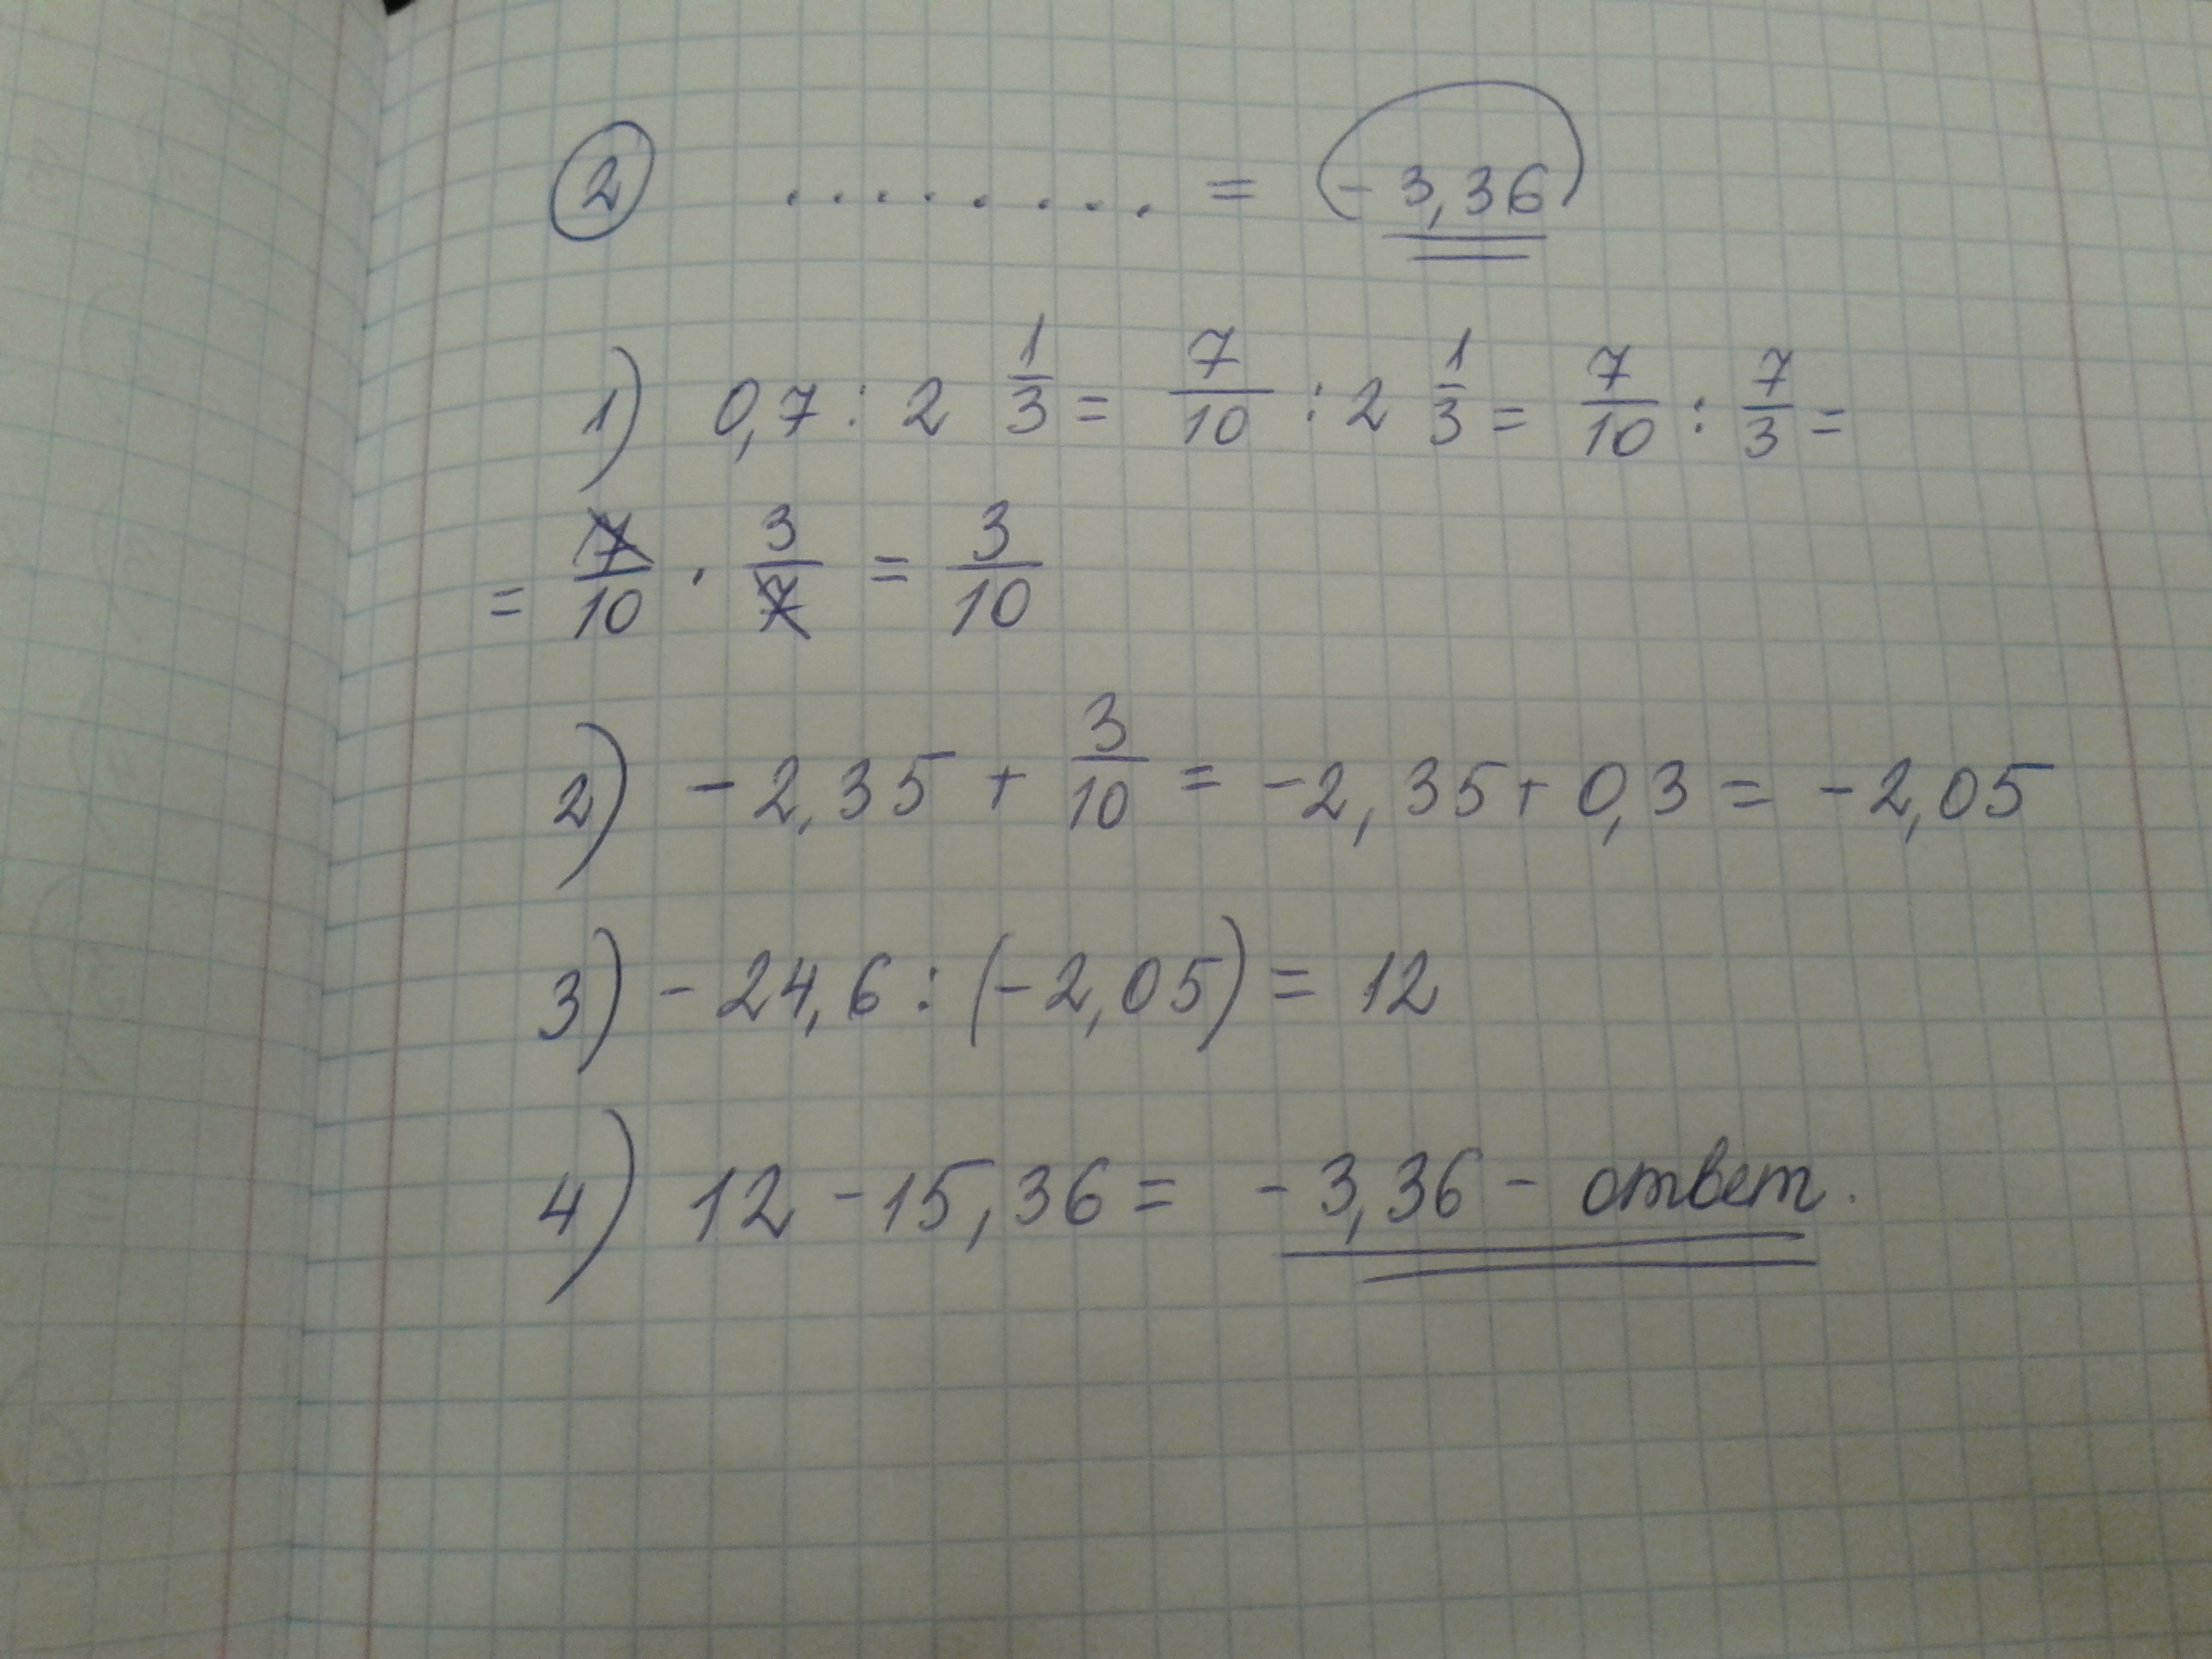 ② . . . . . . . . = -3,36
1) 0,7 : 2 1/3 = 7/10 : 2 1/3 = 7/10 : 7/3 =
= 7/10 · 3/7 = 3/10
2) -2,35 + 3/10 = -2,35 + 0,3 = -2,05
3) -24,6 : (-2,05) = 12
4) 12 - 15,36 = -3,36 - ответ.